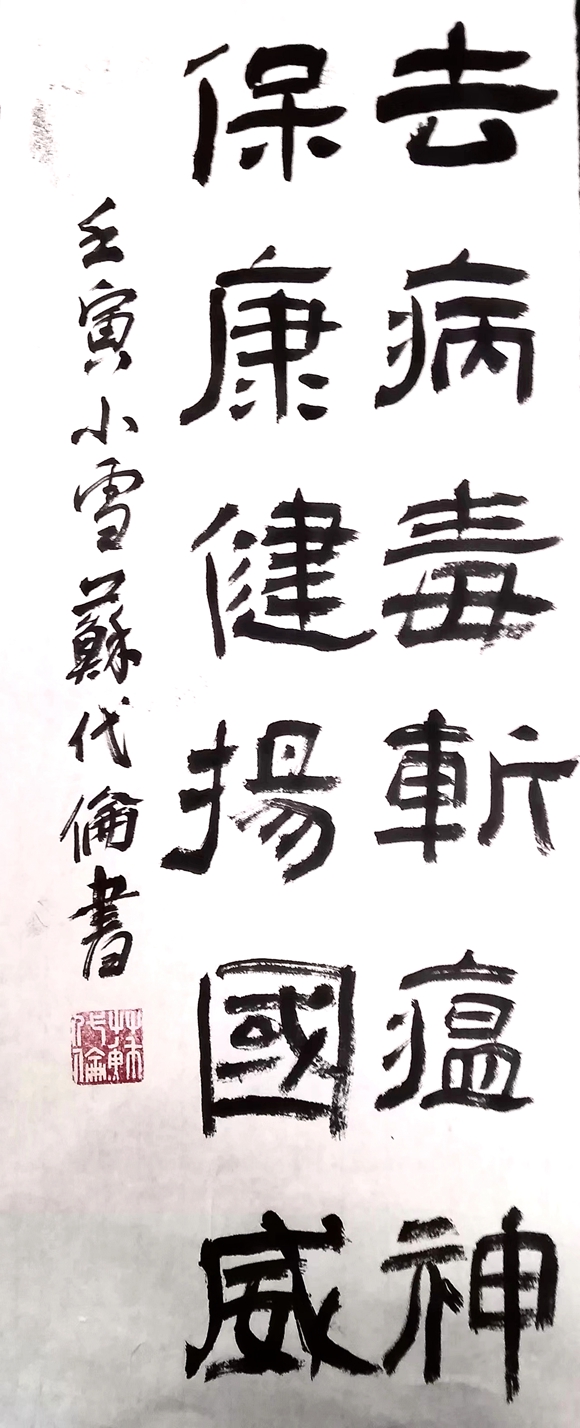 去病毒斬瘟神
保康健揚國威
壬寅小雪蘇代倫書
蘇代倫